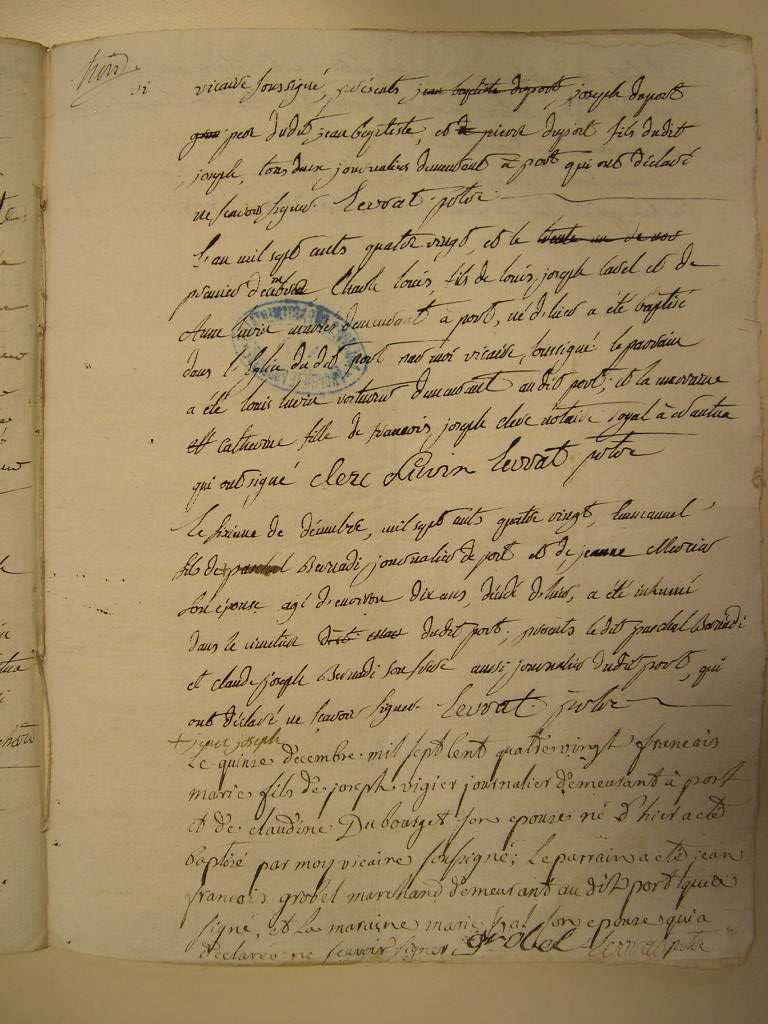 vicaire soussigné, présents jean baptiste duport, joseph duport
pere dudit jean baptiste, et de pierre duport fils dudit
joseph, tous deux journaliers demeurant à port qui ont déclaré
ne scavoir signer. Levrat ptre
L'an mil sept cents quatre vingt, et le trente un de nov
premier décembre Charle louis, fils de louis joseph cavel et de
Anne livin mariés demeurant a port, né d'hier a été baptisé
dans l'Eglise du dit port par moi vicaire, soussigné le parrain
a été louis livin voiturier demeurant audit port; et la marraine
catherine fille de francois joseph clerc notaire royal à nantua
qui ont signé clerc Livin Levrat ptre
Le sixieme de décembre, mil sept cents quatre vingt, Emmanuel
fils de + paschal Bernadi journalier de port et de jeanne Mercier
son épouse agé d'environ dix ans, décédé d'hier, a été inhumé
dans le cimetiere dudit port; présents le dit paschal Bernadi
et claude joseph Bernadi son frere aussi journalier dudit port, qui
ont déclaré ne scavoir signer. Levrat ptre
+ joseph
Le quinze decembre mil sept cent quatre vingt francois
marie fils de joseph vigier journalier demeurant à port
et de claudine Dubourget son epouse né d'hier a eté
baptisé par moy vicaire soussigné; Le parrain a eté jean
francois grobel marchand demeurant au dit port qui a
signé, et la maraine marie son epouse qui a
déclaré ne scavoir signer grobel Levrat ptre